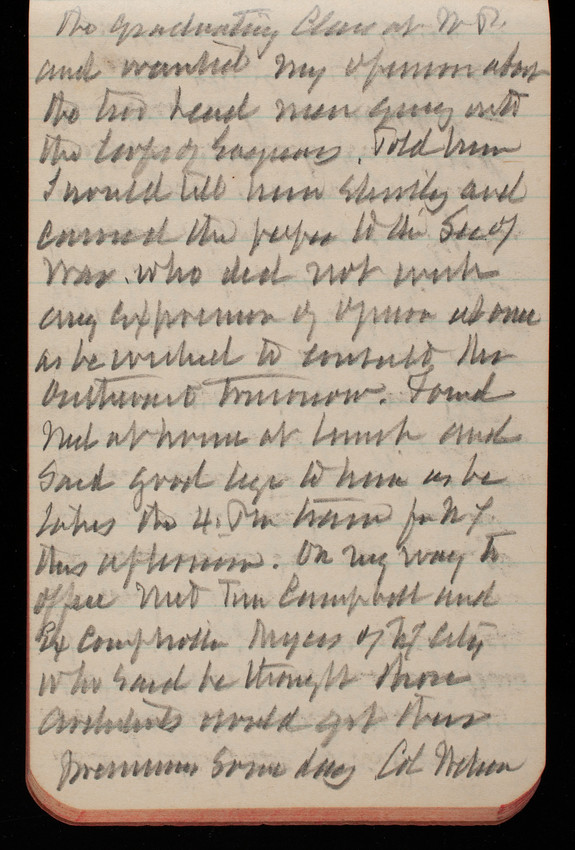 the graduating Class at W. P.
and wanted my opinion about
the two head men going into
the Corps of Engineers. Told him
I would tell him shortly and
carried the paper to the Sec of
War. who did not wish
any expression of opinion at once
as he wished to consult the
tomorrow. Found
Ned at home at lunch and
said good bye to him as he
takes the 4. PM train for N.Y.
this afternoon. On my way to
office met Tim Campbell and
Ex Comptroller Myers of N.Y City
who said he thought those
architects would get their
premiums some day Col Nelson